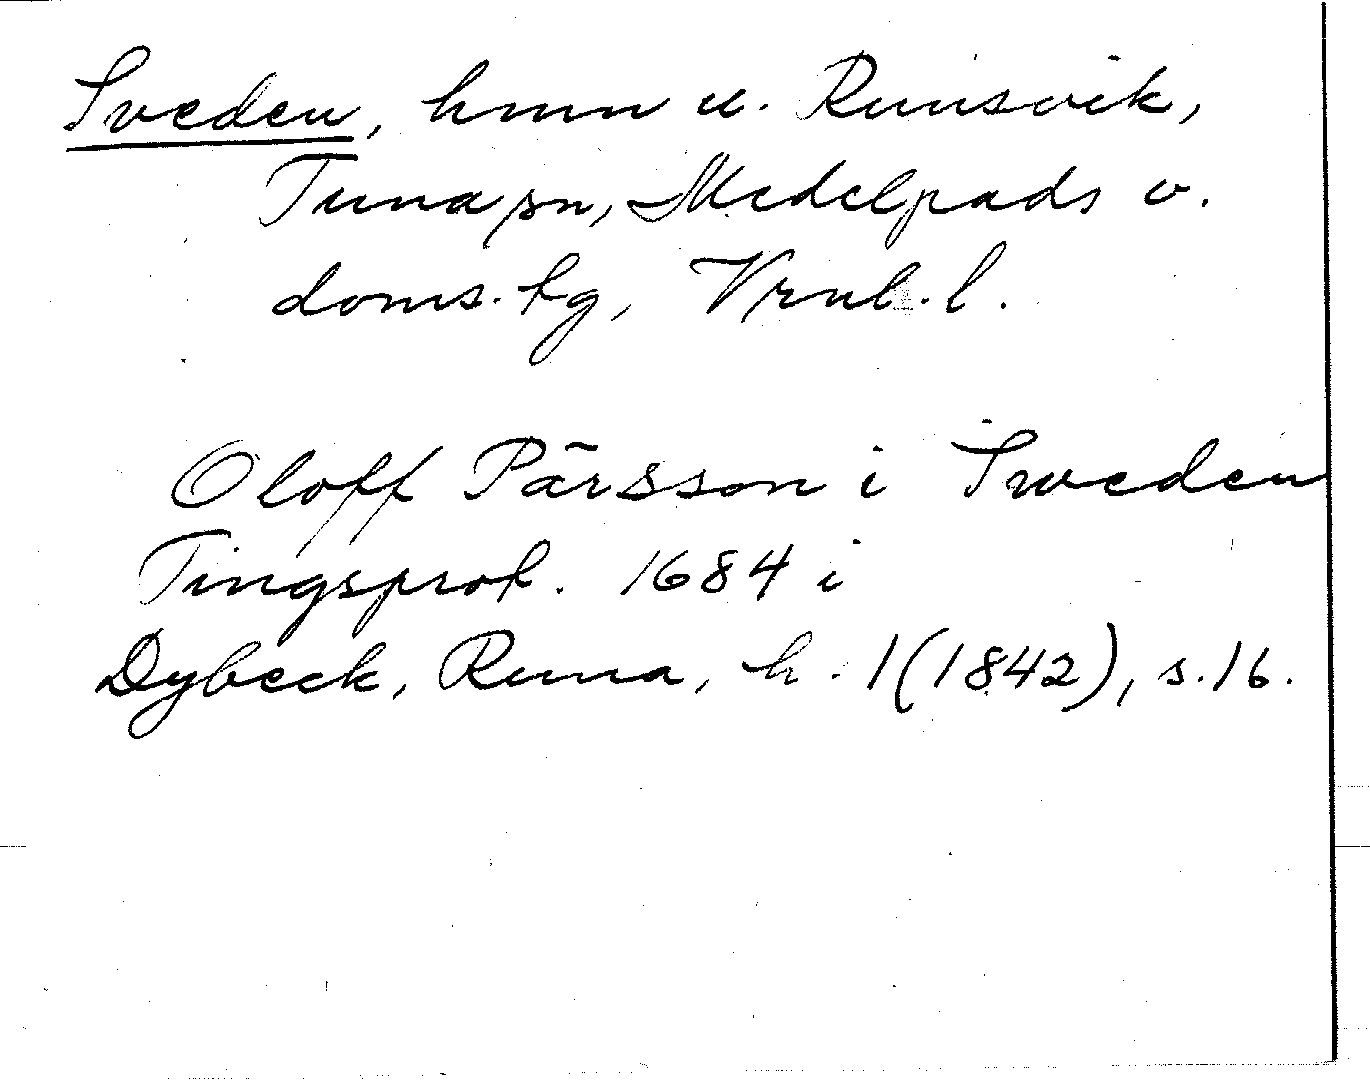 Sveden, hmn u. Runsvik,
Tuna sn, Medelpads v.
doms.hg, Vrnl. l.
Oloff Pärsson i Sweden
Tingsprot. 1684 i
Dybeck, Runa, h. 1(1842), s. 16.